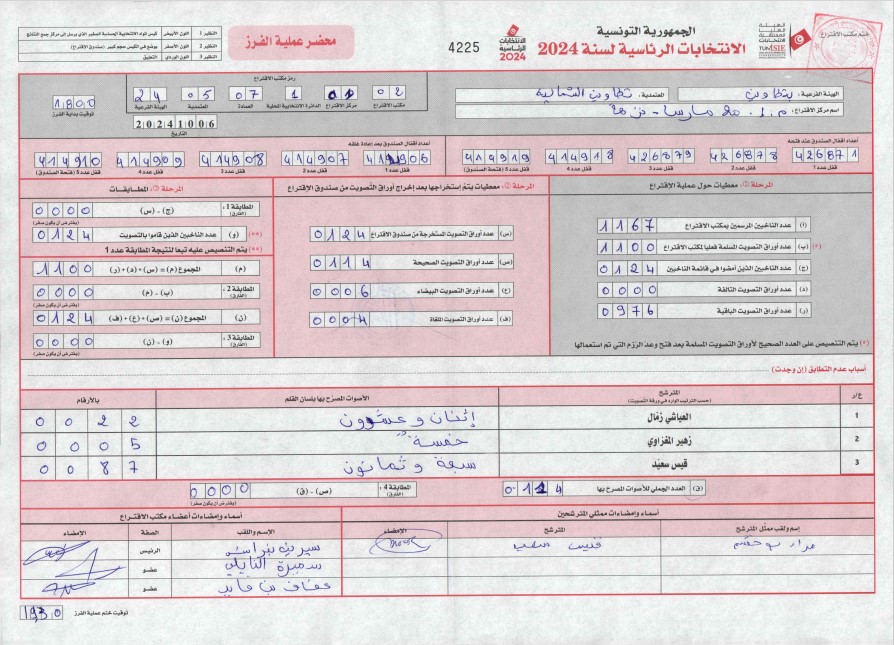 الجمهورية التونسية
الانتخابات الرئاسية لسنة 2024
الهيئة العليا المستقلة للانتخابات
ختم مكتب الاقتراع
الانتخابات الرئاسية 2024
4225
محضر عملية الفرز
النظير 1 اللون الأبيض
النظير 2 اللون الأصفر يوضع في الكيس حجم كبير (صندوق الاقتراع)
النظير 3 اللون الوردي التعليق
الهيئة الفرعية: تطاوين
المعتمدية: تطاوين الشمالية
اسم مركز الاقتراع:
رمز مكتب الاقتراع
02 مكتب الاقتراع
مركز الاقتراع
1 الدائرة الانتخابية المحلية
07 العمادة
05 المعتمدية
24 الهيئة الفرعية
1800
توقيت بداية الفرز
20241006
التاريخ
أعداد أقفال الصندوق عند فتحه
426871 426878 426879 414918 414919
قفل عدد 1 قفل عدد 2 قفل عدد 3 قفل عدد 4 قفل عدد 5 (فتحة الصندوق)
أعداد أقفال الصندوق بعد إعادة غلقه
414906 414907 414908 414909 414910
قفل عدد 1 قفل عدد 2 قفل عدد 3 قفل عدد 4 قفل عدد 5 (فتحة الصندوق)
المرحلة ①: معطيات حول عملية الاقتراع
(أ) عدد الناخبين المرسمين بمكتب الاقتراع 1167
(*) (ب) عدد أوراق التصويت المسلمة فعليا لمكتب الاقتراع 1100
(ج) عدد الناخبين الذين أمضوا في قائمة الناخبين 0124
(د) عدد أوراق التصويت التالفة 0000
(ر) عدد أوراق التصويت الباقية 0976
(*) يتم التنصيص على العدد الصحيح لأوراق التصويت المسلمة بعد فتح وعد الرزم التي تم استعمالها
المرحلة ②: معطيات يتم إستخراجها بعد إخراج أوراق التصويت من صندوق الاقتراع
(س) عدد أوراق التصويت المستخرجة من صندوق الاقتراع 0124
(ص) عدد أوراق التصويت الصحيحة 0114
(ع) عدد أوراق التصويت البيضاء 0006
(ف) عدد أوراق التصويت الملغاة 0004
المرحلة ③: المطابقات
المطابقة 1: (الفارق) (ج) - (س) 0000
(يفترض أن يكون صفر)
(**) (و) عدد الناخبين الذين قاموا بالتصويت 0124
(**) يتم التنصيص عليه تبعا لنتيجة المطابقة عدد 1
(م) المجموع (م) = (س) + (د) + (ر) 1100
المطابقة 2: (الفارق) (ب) - (م) 0000
(يفترض أن يكون صفر)
(ن) المجموع (ن) = (ص) + (ع) + (ف) 0124
المطابقة 3: (الفارق) (و) - (ن) 0000
(يفترض أن يكون صفر)
أسباب عدم التطابق (إن وجدت)
ع/ر المترشح (حسب الترتيب الوارد في ورقة التصويت) الأصوات المصرح بها بلسان القلم بالأرقام
1 العياشي زمّال إثنان وعشرون 0022
2 زهير المغزاوي خمسة 0005
3 قيس سعيّد سبعة وثمانون 0087
(ق) العدد الجملي للأصوات المصرح بها 0114
المطابقة 4: (الفارق) (ص) - (ق) 0000
(يفترض أن يكون صفر)
أسماء وإمضاءات ممثلي المترشحين
إسم ولقب ممثل المترشح المترشح الإمضاء
قيس سعيد
أسماء وإمضاءات أعضاء مكتب الاقتراع
الإسم واللقب الصفة الإمضاء
الرئيس
سميرة النايلي عضو
عفاف بن فايد عضو
توقيت ختم عملية الفرز 1930